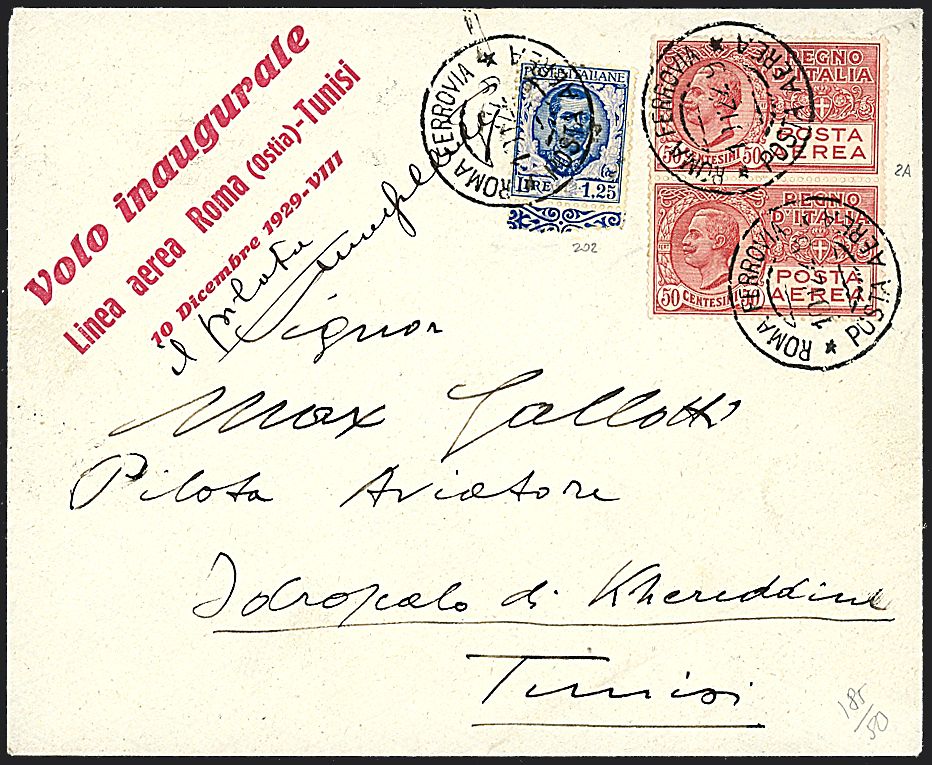 Volo inaugurale
Linea aerea Roma (Ostia)-Tunisi
10 Dicembre 1929-VIII
il pilota
POSTE ITALIANE
LIRE 1,25
REGNO
D'ITALIA
POSTA
AEREA
50 CENTESIMI 50
REGNO
D'ITALIA
POSTA
AEREA
50 CENTESIMI 50
ROMA FERROVIA
POSTA AEREA
ROMA FERROVIA
POSTA AEREA
ROMA FERROVIA
POSTA AEREA
2A
202
Signor
Max Gallotti
Pilota Aviatore
Idroscalo di Khereddine
Tunisi
185
50